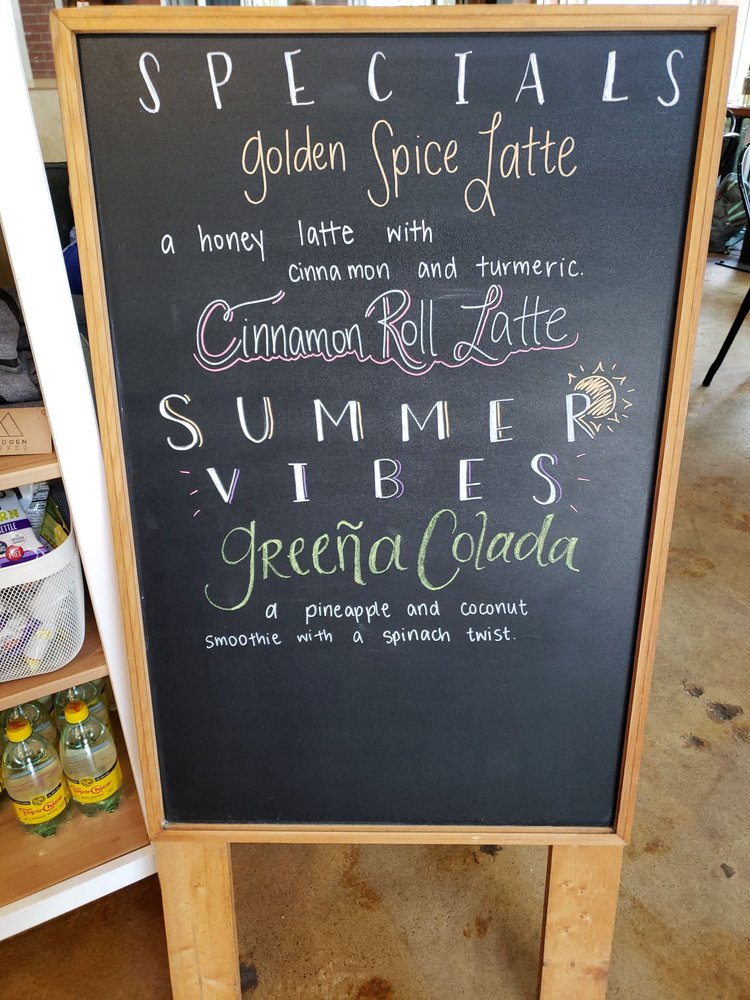 SPECIALS
golden Spice Latte
a honey latte with
cinnamon and turmeric.
Cinnamon Roll Latte
SUMMER
VIBES
greeña Colada
a pineapple and coconut
smoothie with a spinach twist.
KETTLE
Topo Chico
Topo Chico